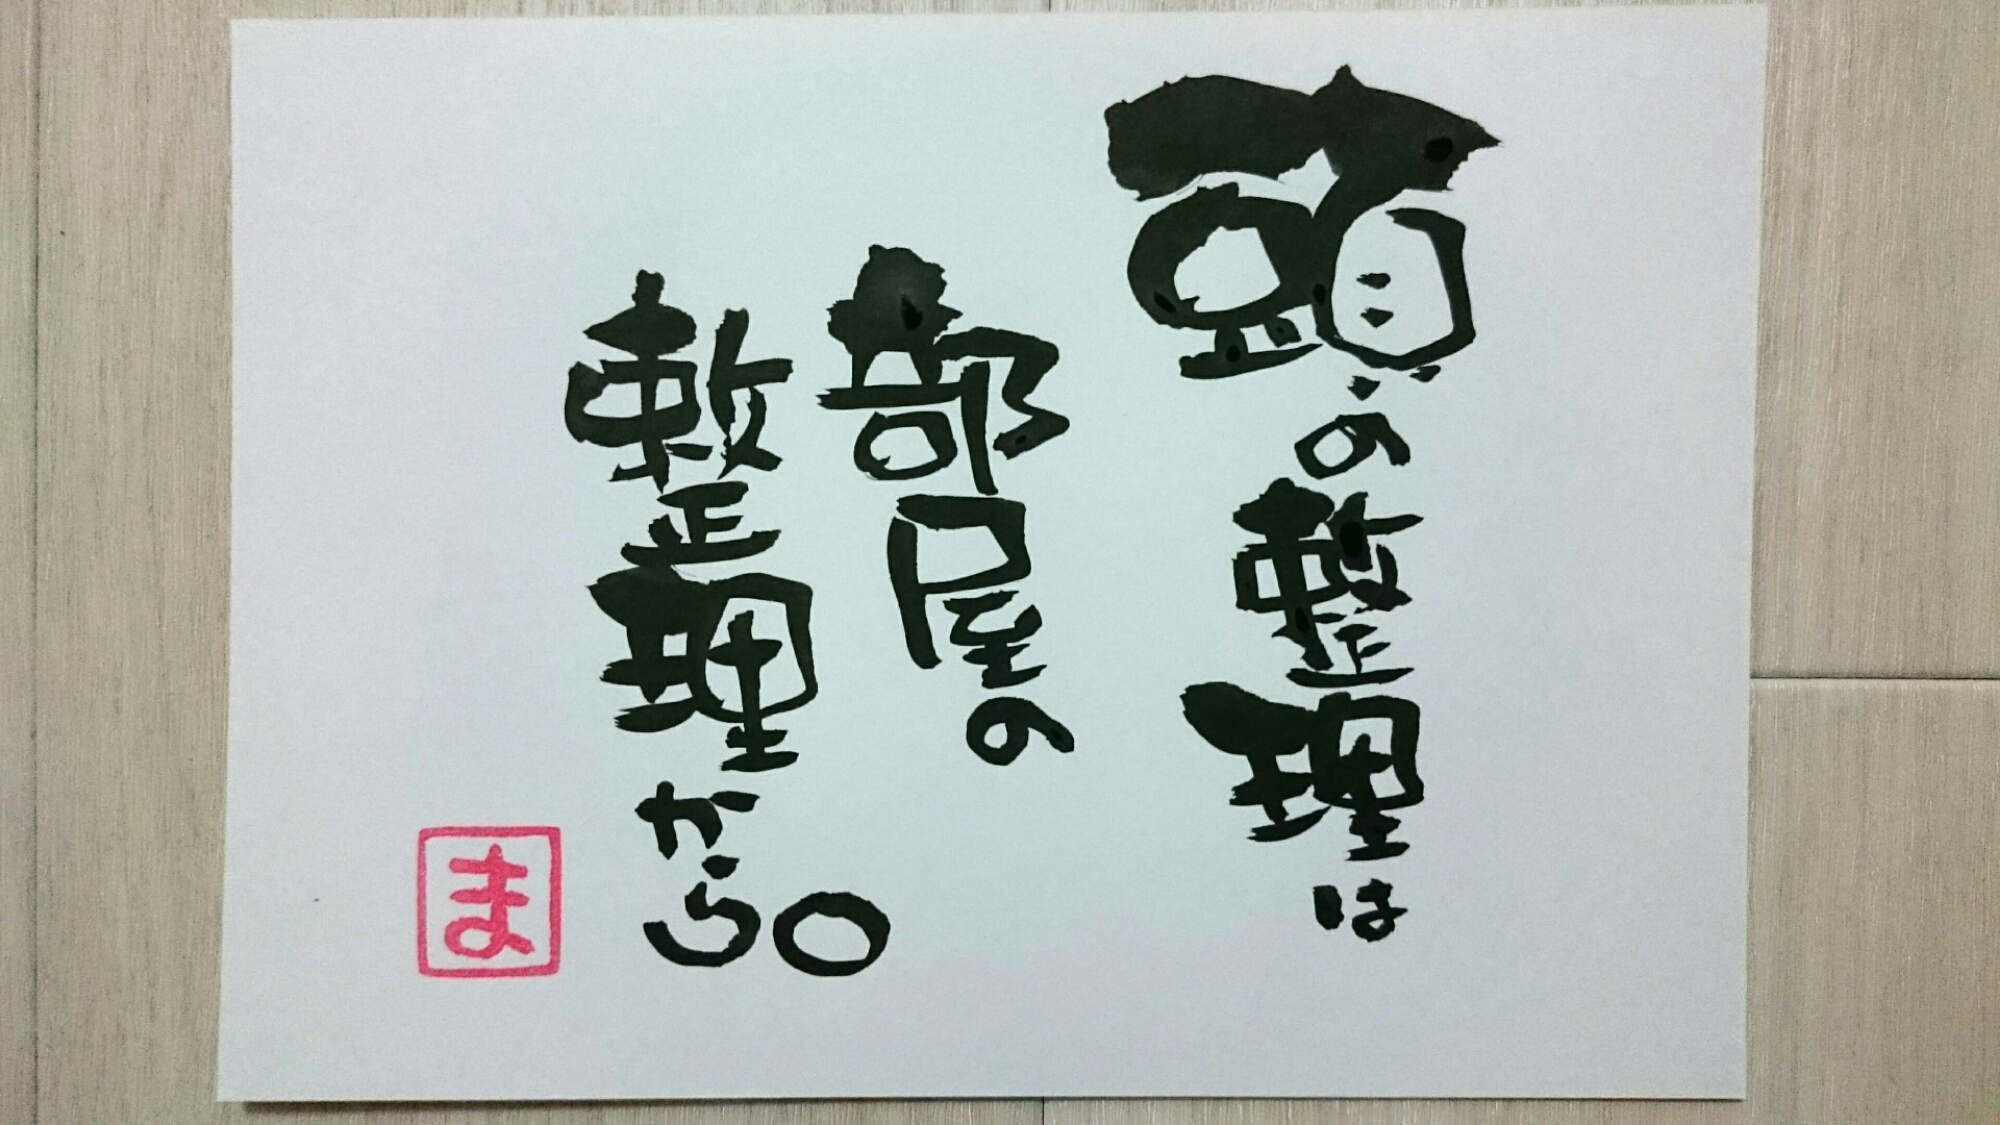 頭の整理は
部屋の
整理から。
ま